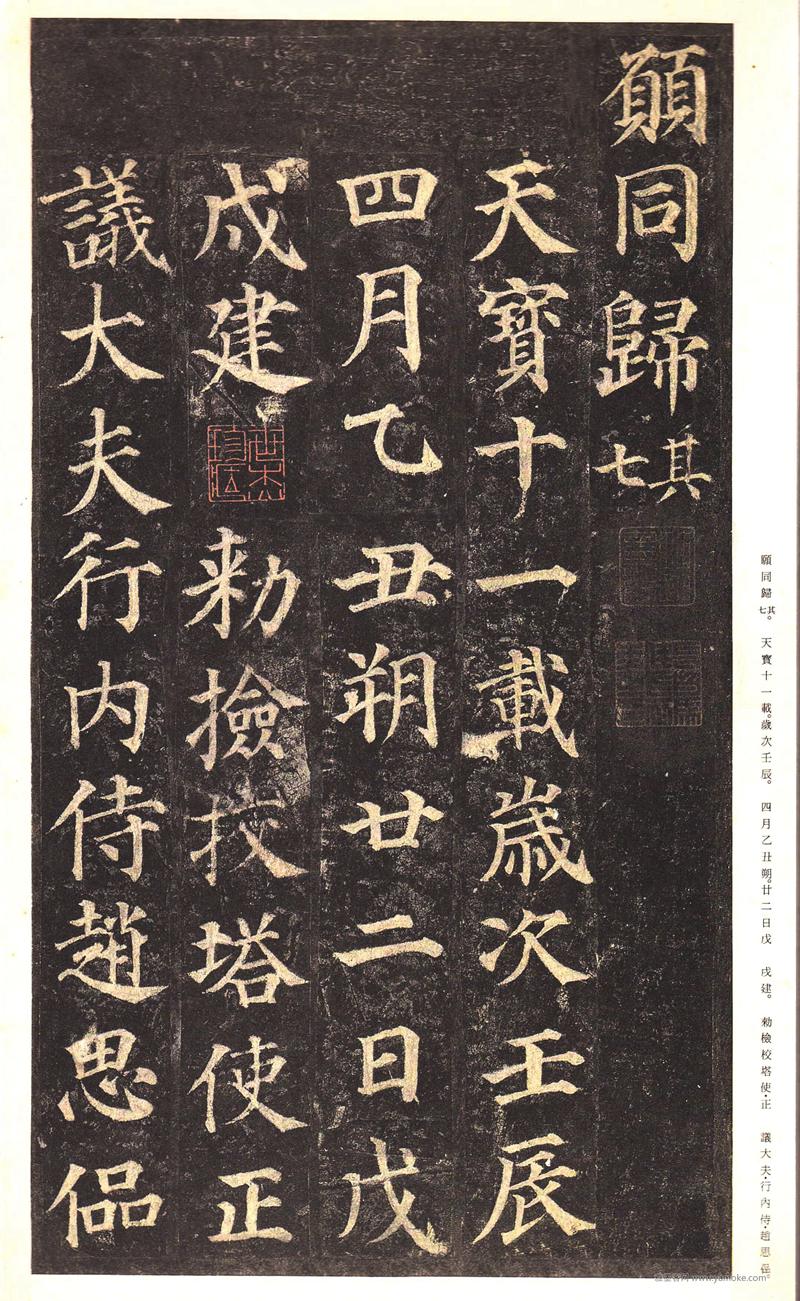 願同歸其七
天寶十一載歲次壬辰
四月乙丑朔廿二日戊
戌建勑撿挍塔使正
議大夫行內侍趙思偘
願同歸其七。天寶十一載。歲次壬辰。四月乙丑朔。廿二日戊戌建。勑檢校塔使・正議大夫・行內侍・趙思偘。
www.yamoke.com